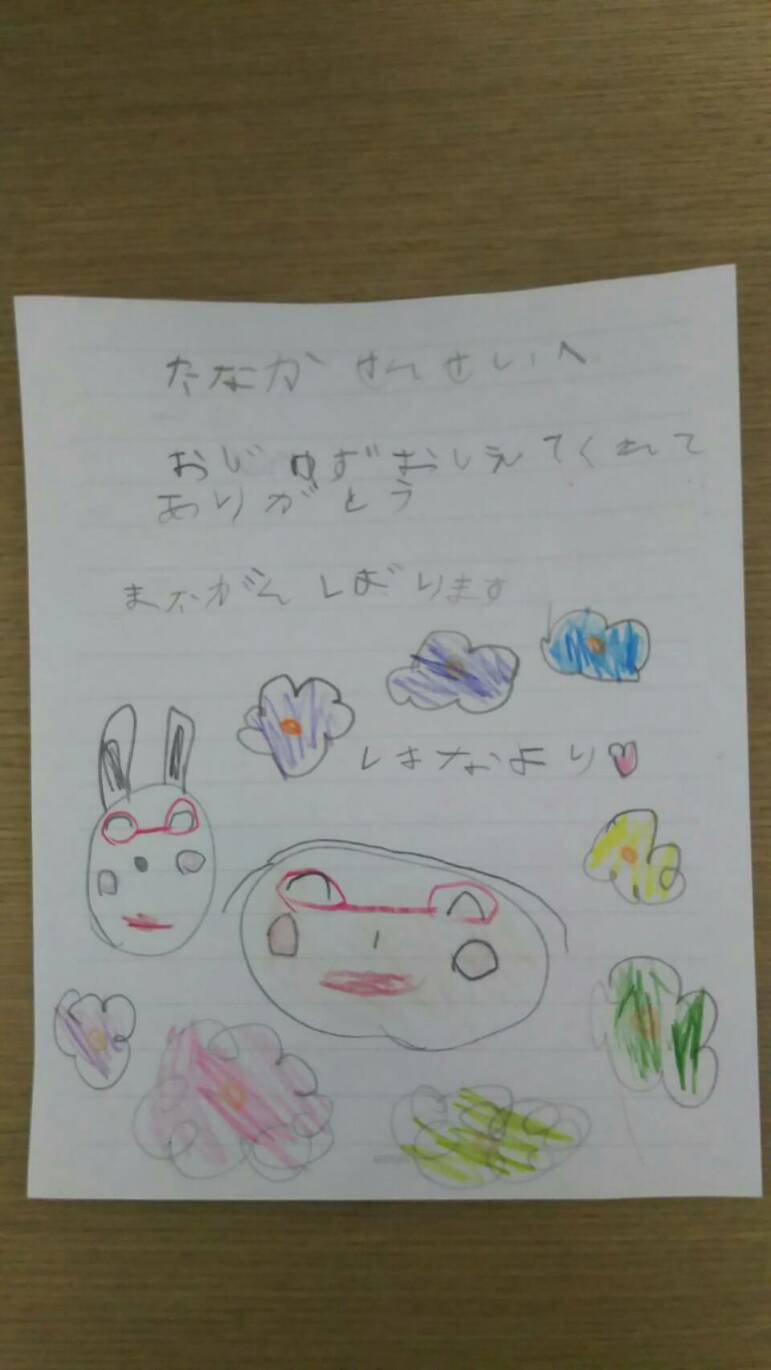 たなか せんせいへ
おじゅずおしえてくれて
ありがとう
またがんばります
はなより